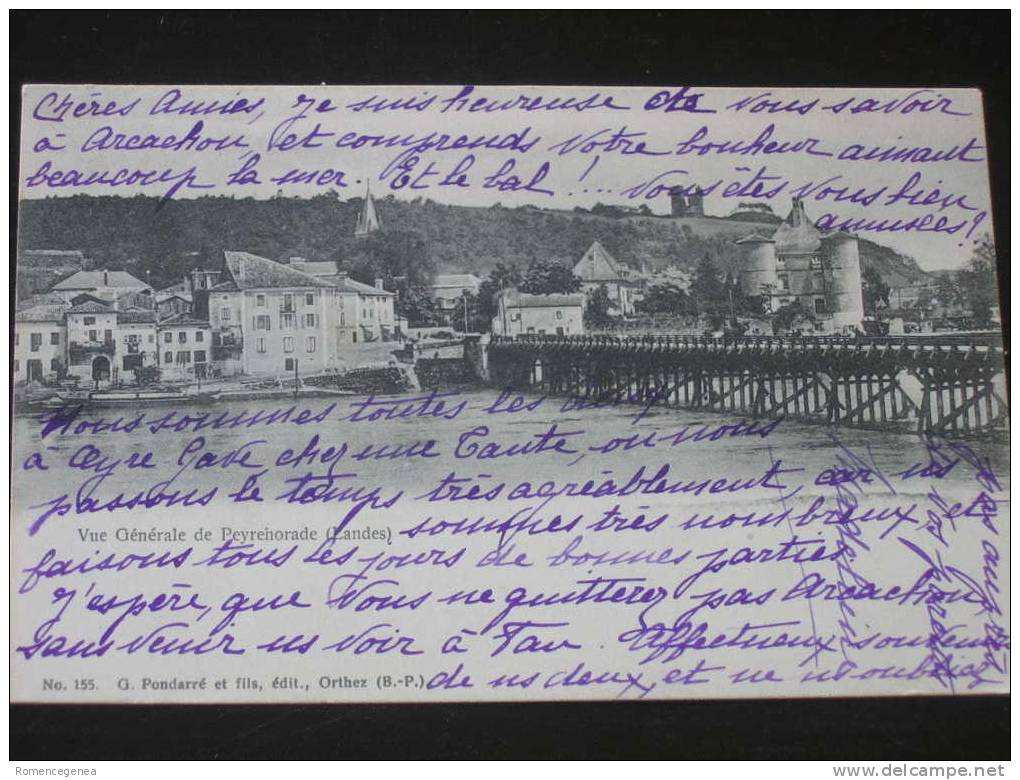 Chères Amies, Je suis heureuse de vous savoir
à Arcachon, et comprends votre bonheur aimant
beaucoup la mer. Et le bal !.... vous êtes vous bien
amusées?
Nous sommes toutes les deux
à Oeyre Gave chez une Tante, où nous
passons le temps très agréablement, car ns
sommes très nombreux, et
Vue Générale de Peyrehorade (Landes)
faisons tous les jours de bonnes parties.
J'espère, que Vous ne quitterez pas Arcachon,
sans venir ns voir à Pau. Affectueux souvenir
de ns deux, et ne ns oubliez
pas auprès
de vos parents
No. 155. G. Pondarré et fils, édit., Orthez (B.-P.)
Romencegenea
http://www.delcampe.net